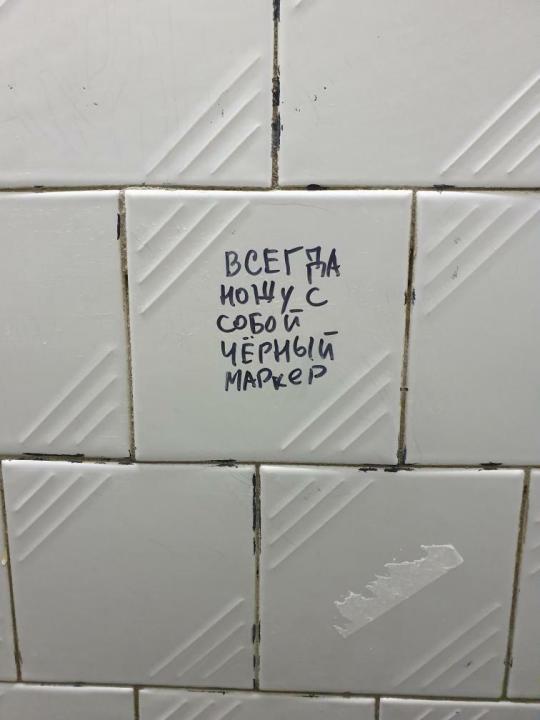 ВСЕГДА
НОШУ С
СОБОЙ
ЧЁРНЫЙ
МАРКеР